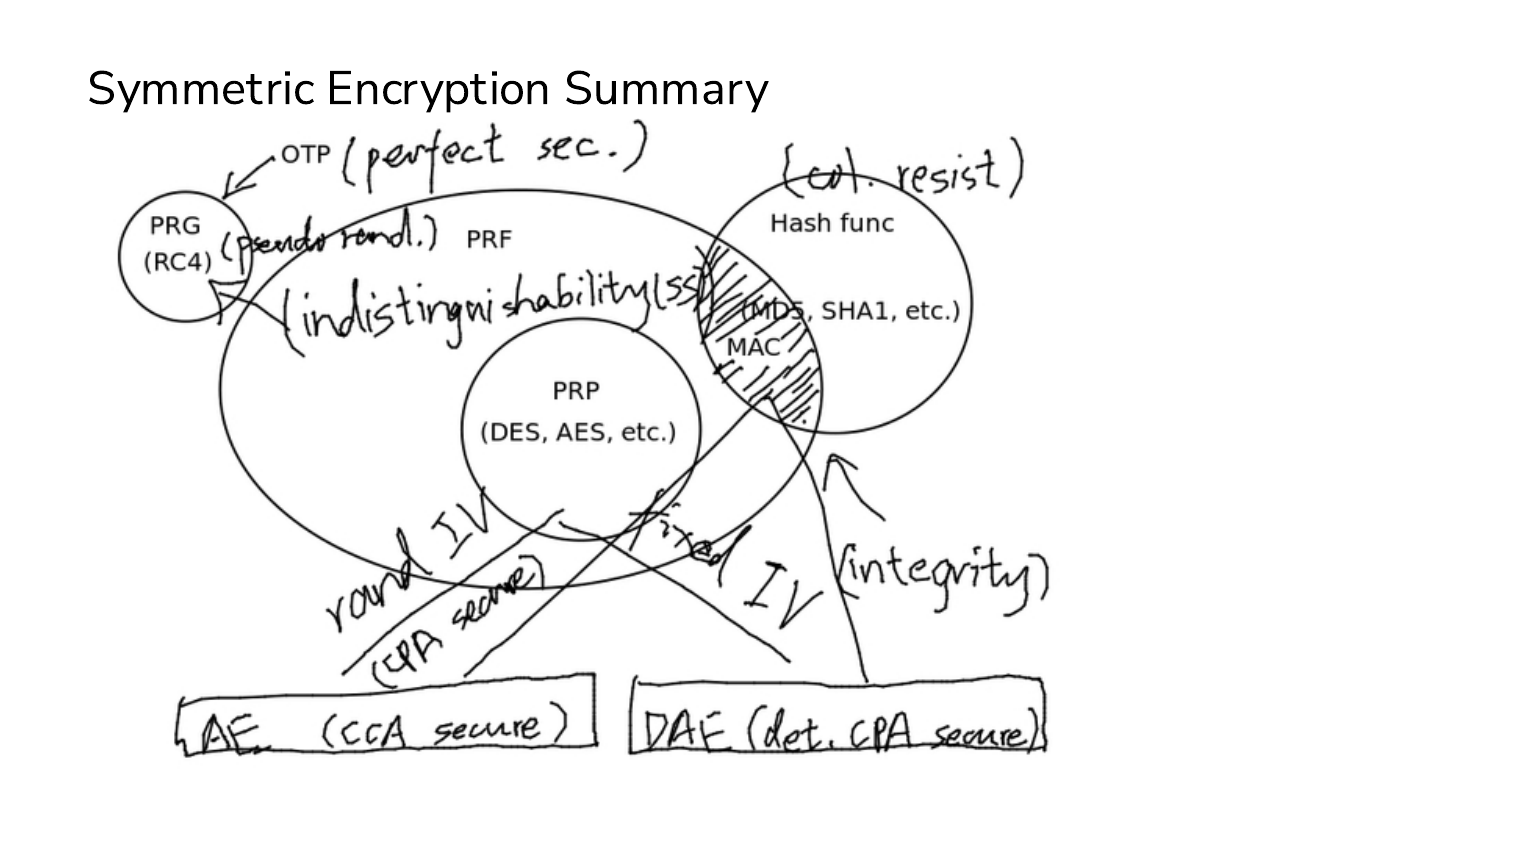 Symmetric Encryption Summary
OTP (perfect sec.)
(col. resist)
PRG
(RC4)
(pseudo rand.)
PRF
Hash func
(indistinguishability(ss))
(MD5, SHA1, etc.)
MAC
PRP
(DES, AES, etc.)
rand IV
(CPA secure)
fixed IV
(integrity)
AE (CCA secure)
DAE (det. CPA secure)